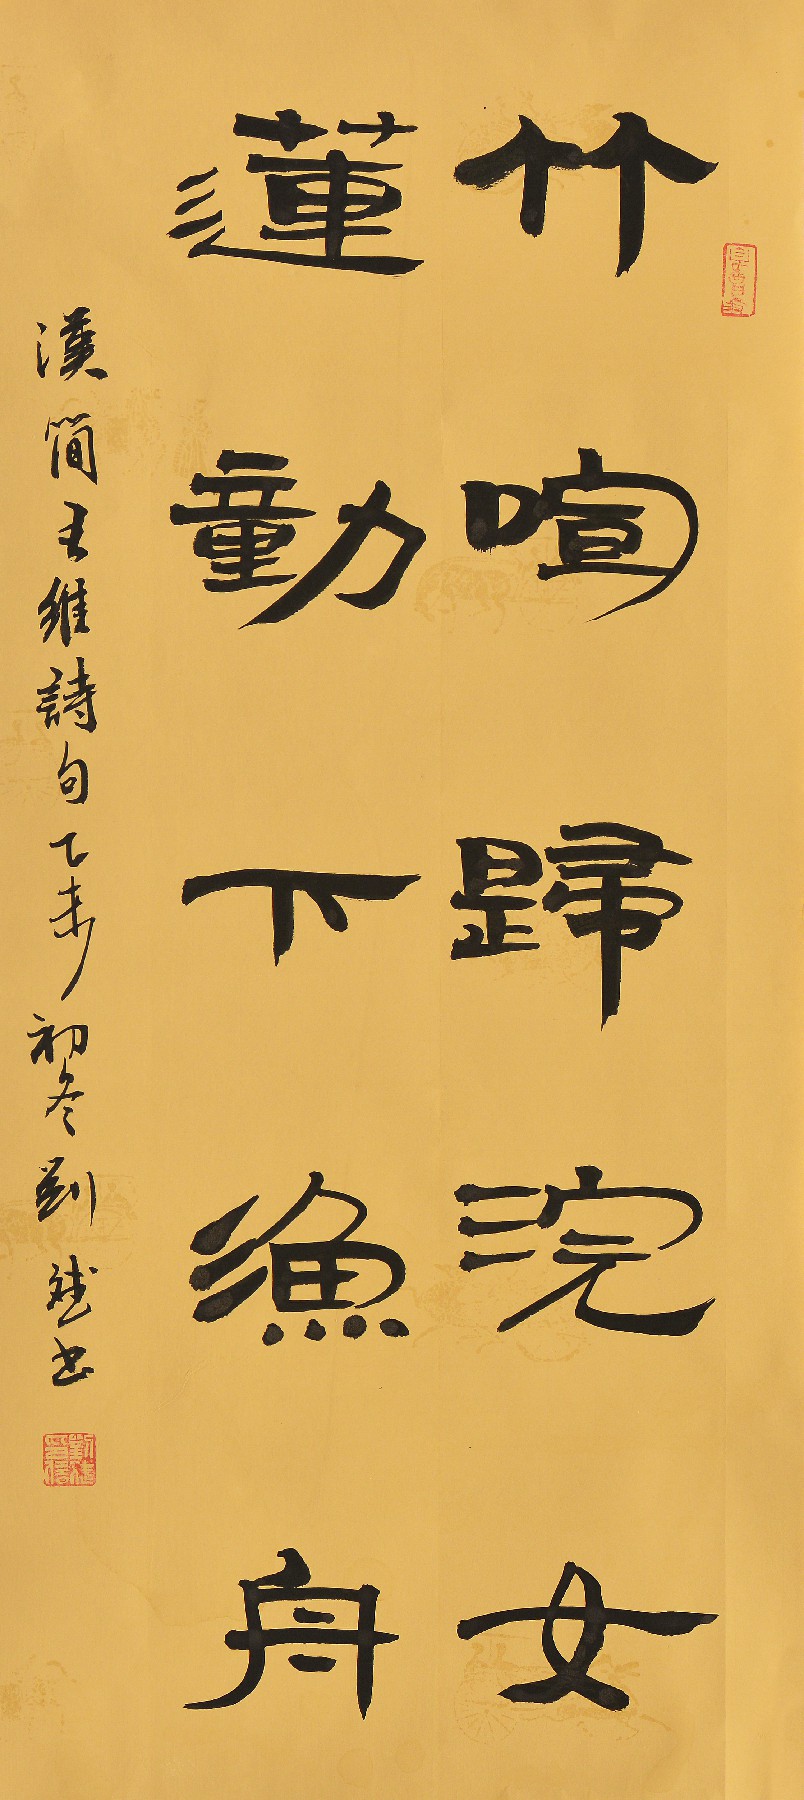 竹喧歸浣女
蓮動下漁舟
漢簡王維詩句乙未初冬劉斌书